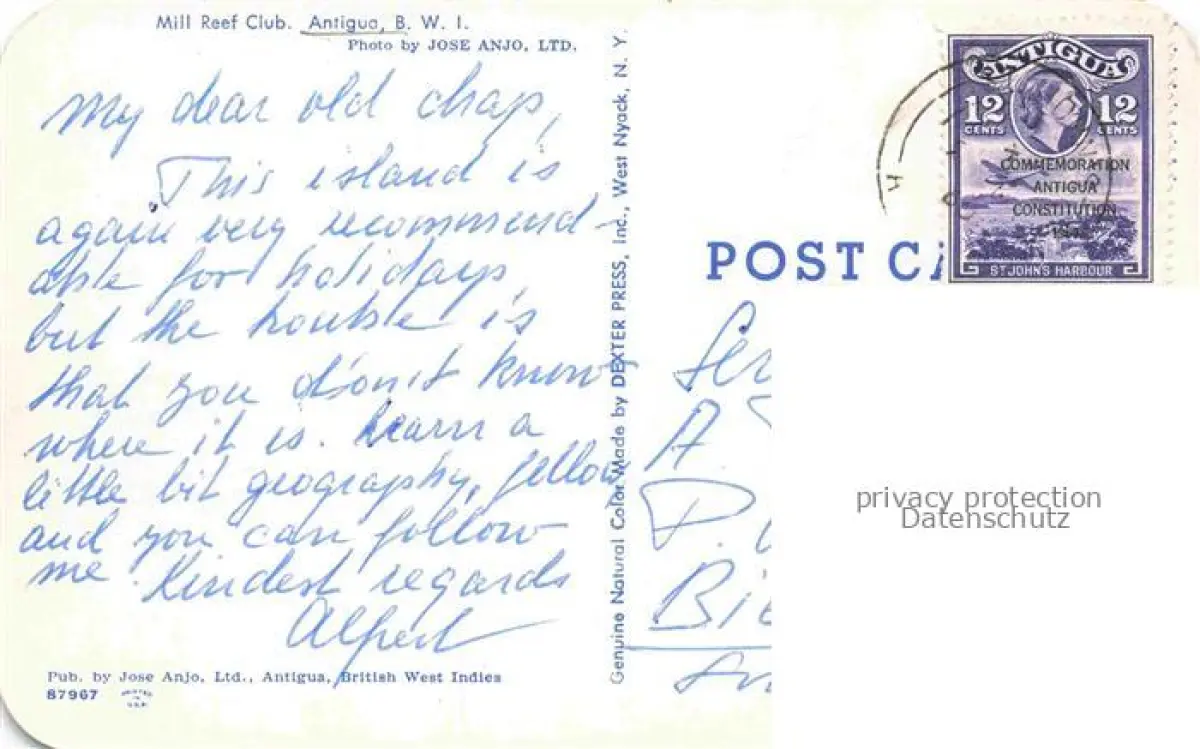 Mill Reef Club. Antigua, B. W. I.
Photo by JOSE ANJO, LTD.
My dear old chap,
This island is
again very recommend-
able for holidays
but the trouble is
that you don't know
where it is. Learn a
little bit geography, fellow
and you can follow
me. Kindest regards
Alfred
Pub. by Jose Anjo, Ltd., Antigua, British West Indies
87967
PRINTED IN U.S.A.
Genuine Natural Color Made by DEXTER PRESS, Inc., West Nyack, N. Y.
POST CA
ANTIGUA
12 CENTS 12 CENTS
COMMEMORATION
ANTIGUA
CONSTITUTION
ST JOHN'S HARBOUR
A.
P.
privacy protection
Datenschutz